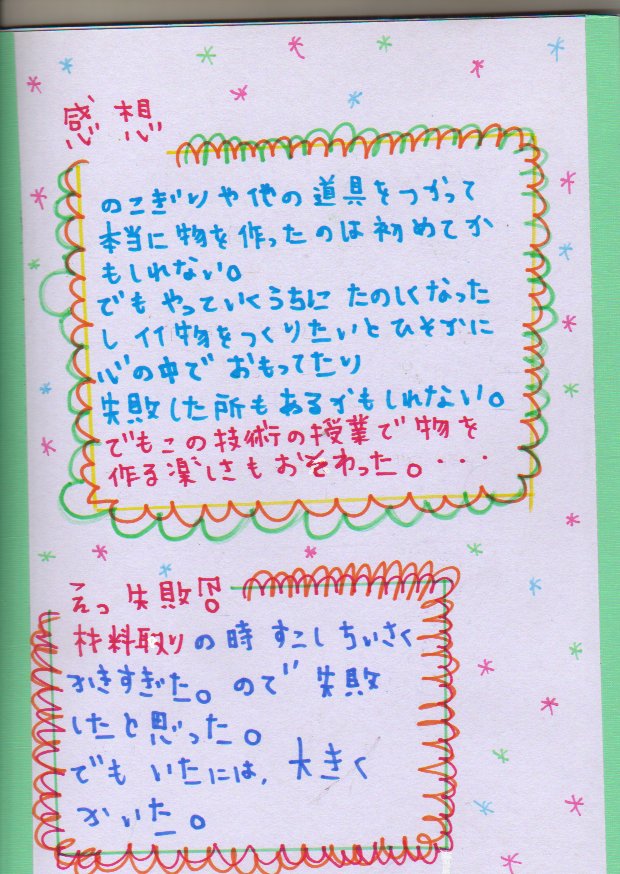 感想
のこぎりや他の道具をつかって
本当に物を作ったのは初めてか
もしれない。
でもやっていくうちにたのしくなった
しイイ物をつくりたいとひそかに
心の中でおもってたり
失敗した所もあるかもしれない。
でもこの技術の授業で物を
作る楽しさもおそわった。・・・
えっ失敗
材料取りの時すこしちいさく
かきすぎた。ので失敗
したと思った。
でもいたには、大きく
かいた。